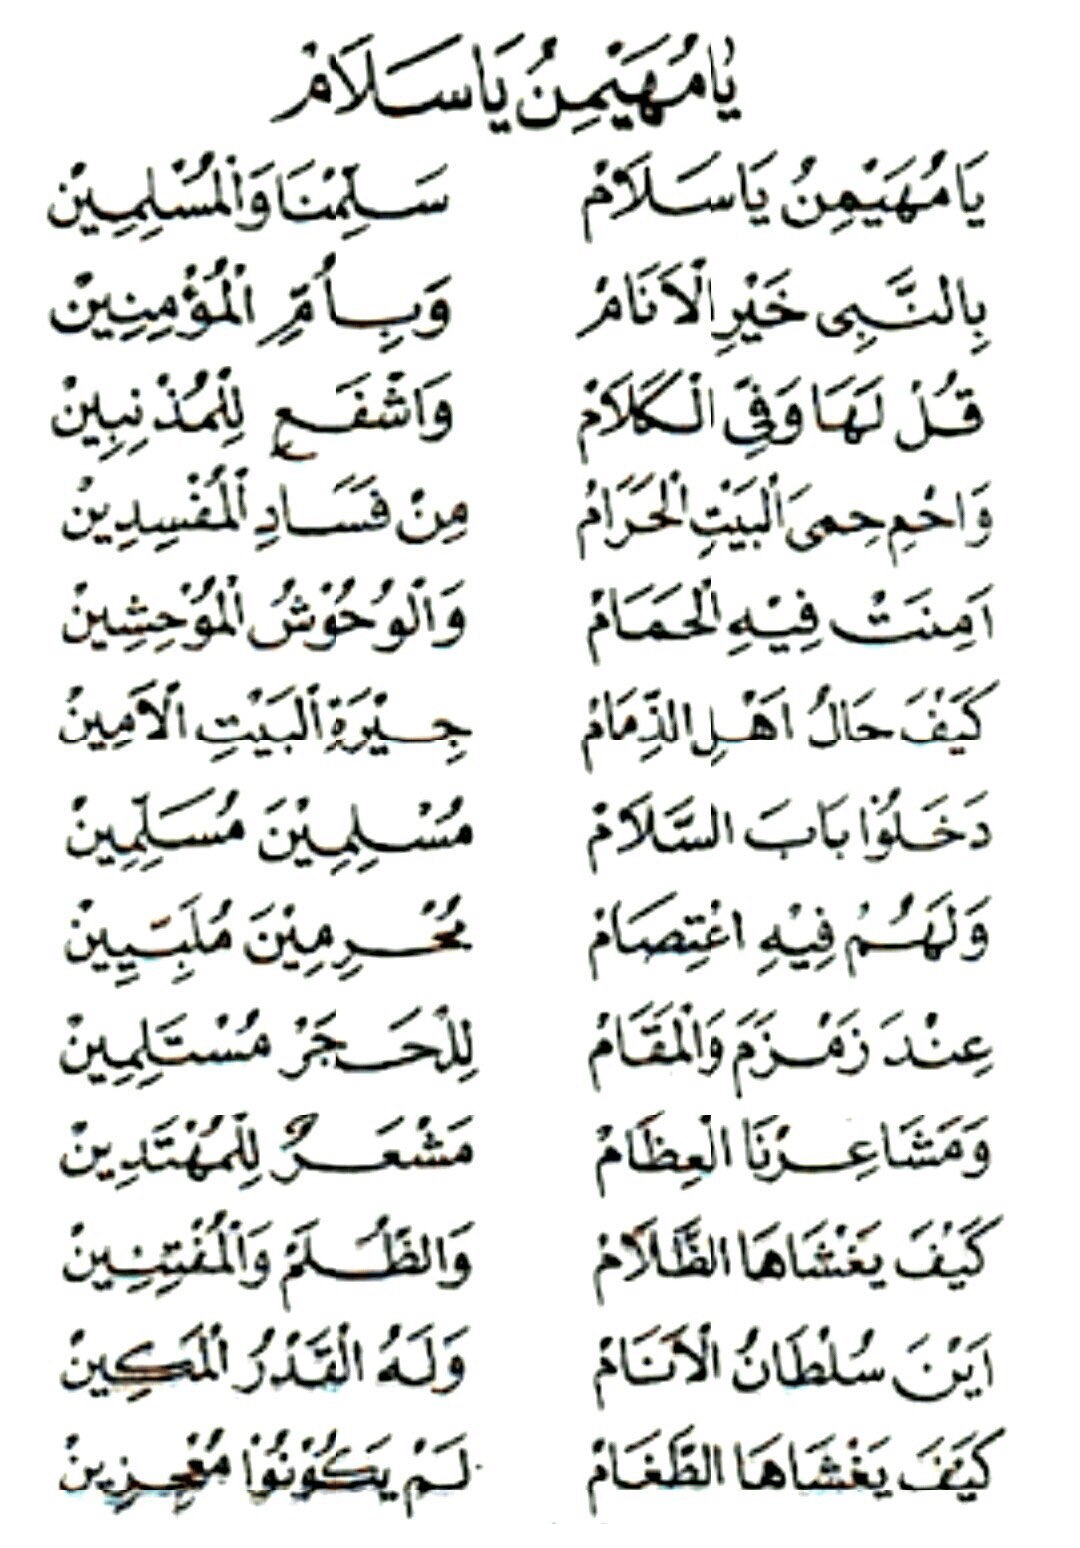 يَا مُهَيْمِنُ يَا سَلَامْ
يَا مُهَيْمِنُ يَا سَلَامْ سَلِّمْنَا وَالْمُسْلِمِيْنْ
بِالنَّبِى خَيْرِ الْاَنَامْ وَبِاُمِّ الْمُؤْمِنِيْنْ
قُلْ لَهَا وَفِي الْكَلَامْ وَاشْفَعِ لِلْمُذْنِبِيْنْ
وَاحْمِ حِمىَ الْبَيْتِ الْحَرَامْ مِنْ فَسَادِ الْمُفْسِدِيْنْ
اَمِنَتْ فِيْهِ الْحَمَامْ وَالْوُحُوْشُ الْمُوْحِشِيْنْ
كَيْفَ حَالُ اَهْلِ الذِّمَامْ جِيْرَةِ الْبَيْتِ الْاَمِيْنْ
دَخَلُوْا بَابَ السَّلَامْ مُسْلِمِيْنَ مُسَلِّمِيْنْ
وَلَهُمْ فِيْهِ اعْتِصَامْ مُحْرِمِيْنَ مُلَبِّيِيْنْ
عِنْدَ زَمْزَمَ وَالْمَقَامْ لِلْحَجَرْ مُسْتَلِمِيْنْ
وَمَشَاعِرْنَا الْعِظَامْ مَشْعَرٌ لِلْمُهْتَدِيْنْ
كَيْفَ يَغْشَاهَا الظَّلَامْ وَالظُّلَمْ وَالْمُفْتِنِيْنْ
اَيْنَ سُلْطَانُ الْاَنَامْ وَلَهُ الْقَدْرُ الْمَكِيْنْ
كَيْفَ يَغْشَاهَا الطَّغَامْ لَمْ يَكُوْنُوْا مُعْجِزِيْنْ